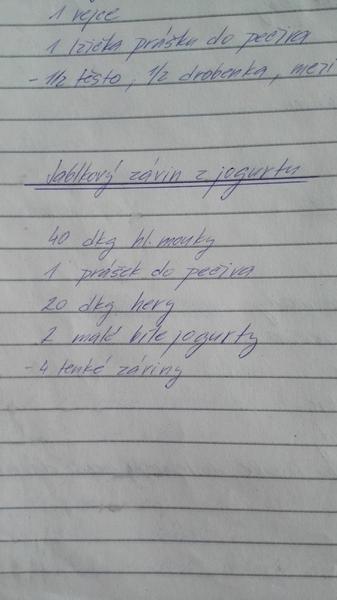 1 vejce
1 lžička prášku do pečiva
- 1/2 těsto, 1/2 drobenka, mezi
Jablkový závin z jogurtu
40 dkg hl. mouky
1 prášek do pečiva
20 dkg hery
2 malé bílé jogurty
- 4 tenké záviny